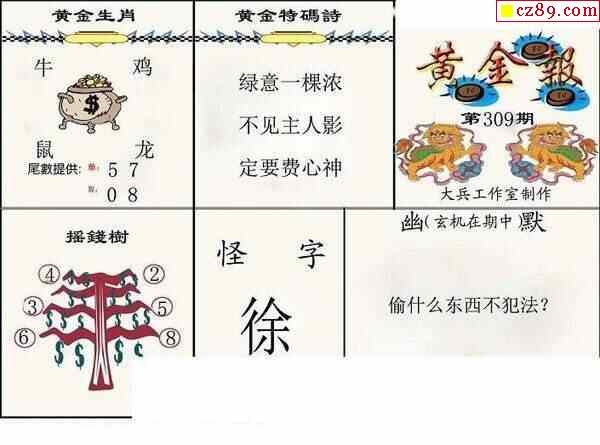 cz89.com
黄金生肖
牛 鸡
$
鼠 龙
尾數提供: 单: 5 7
双: 0 8
黄金特碼詩
绿意一棵浓
不见主人影
定要费心神
黄金報
第309期
大兵工作室制作
摇錢樹
④ ②
③ ⑤
⑥ ⑧
$ $ $ $ $ $ $ $
怪 字
徐
幽(玄机在期中)默
偷什么东西不犯法?